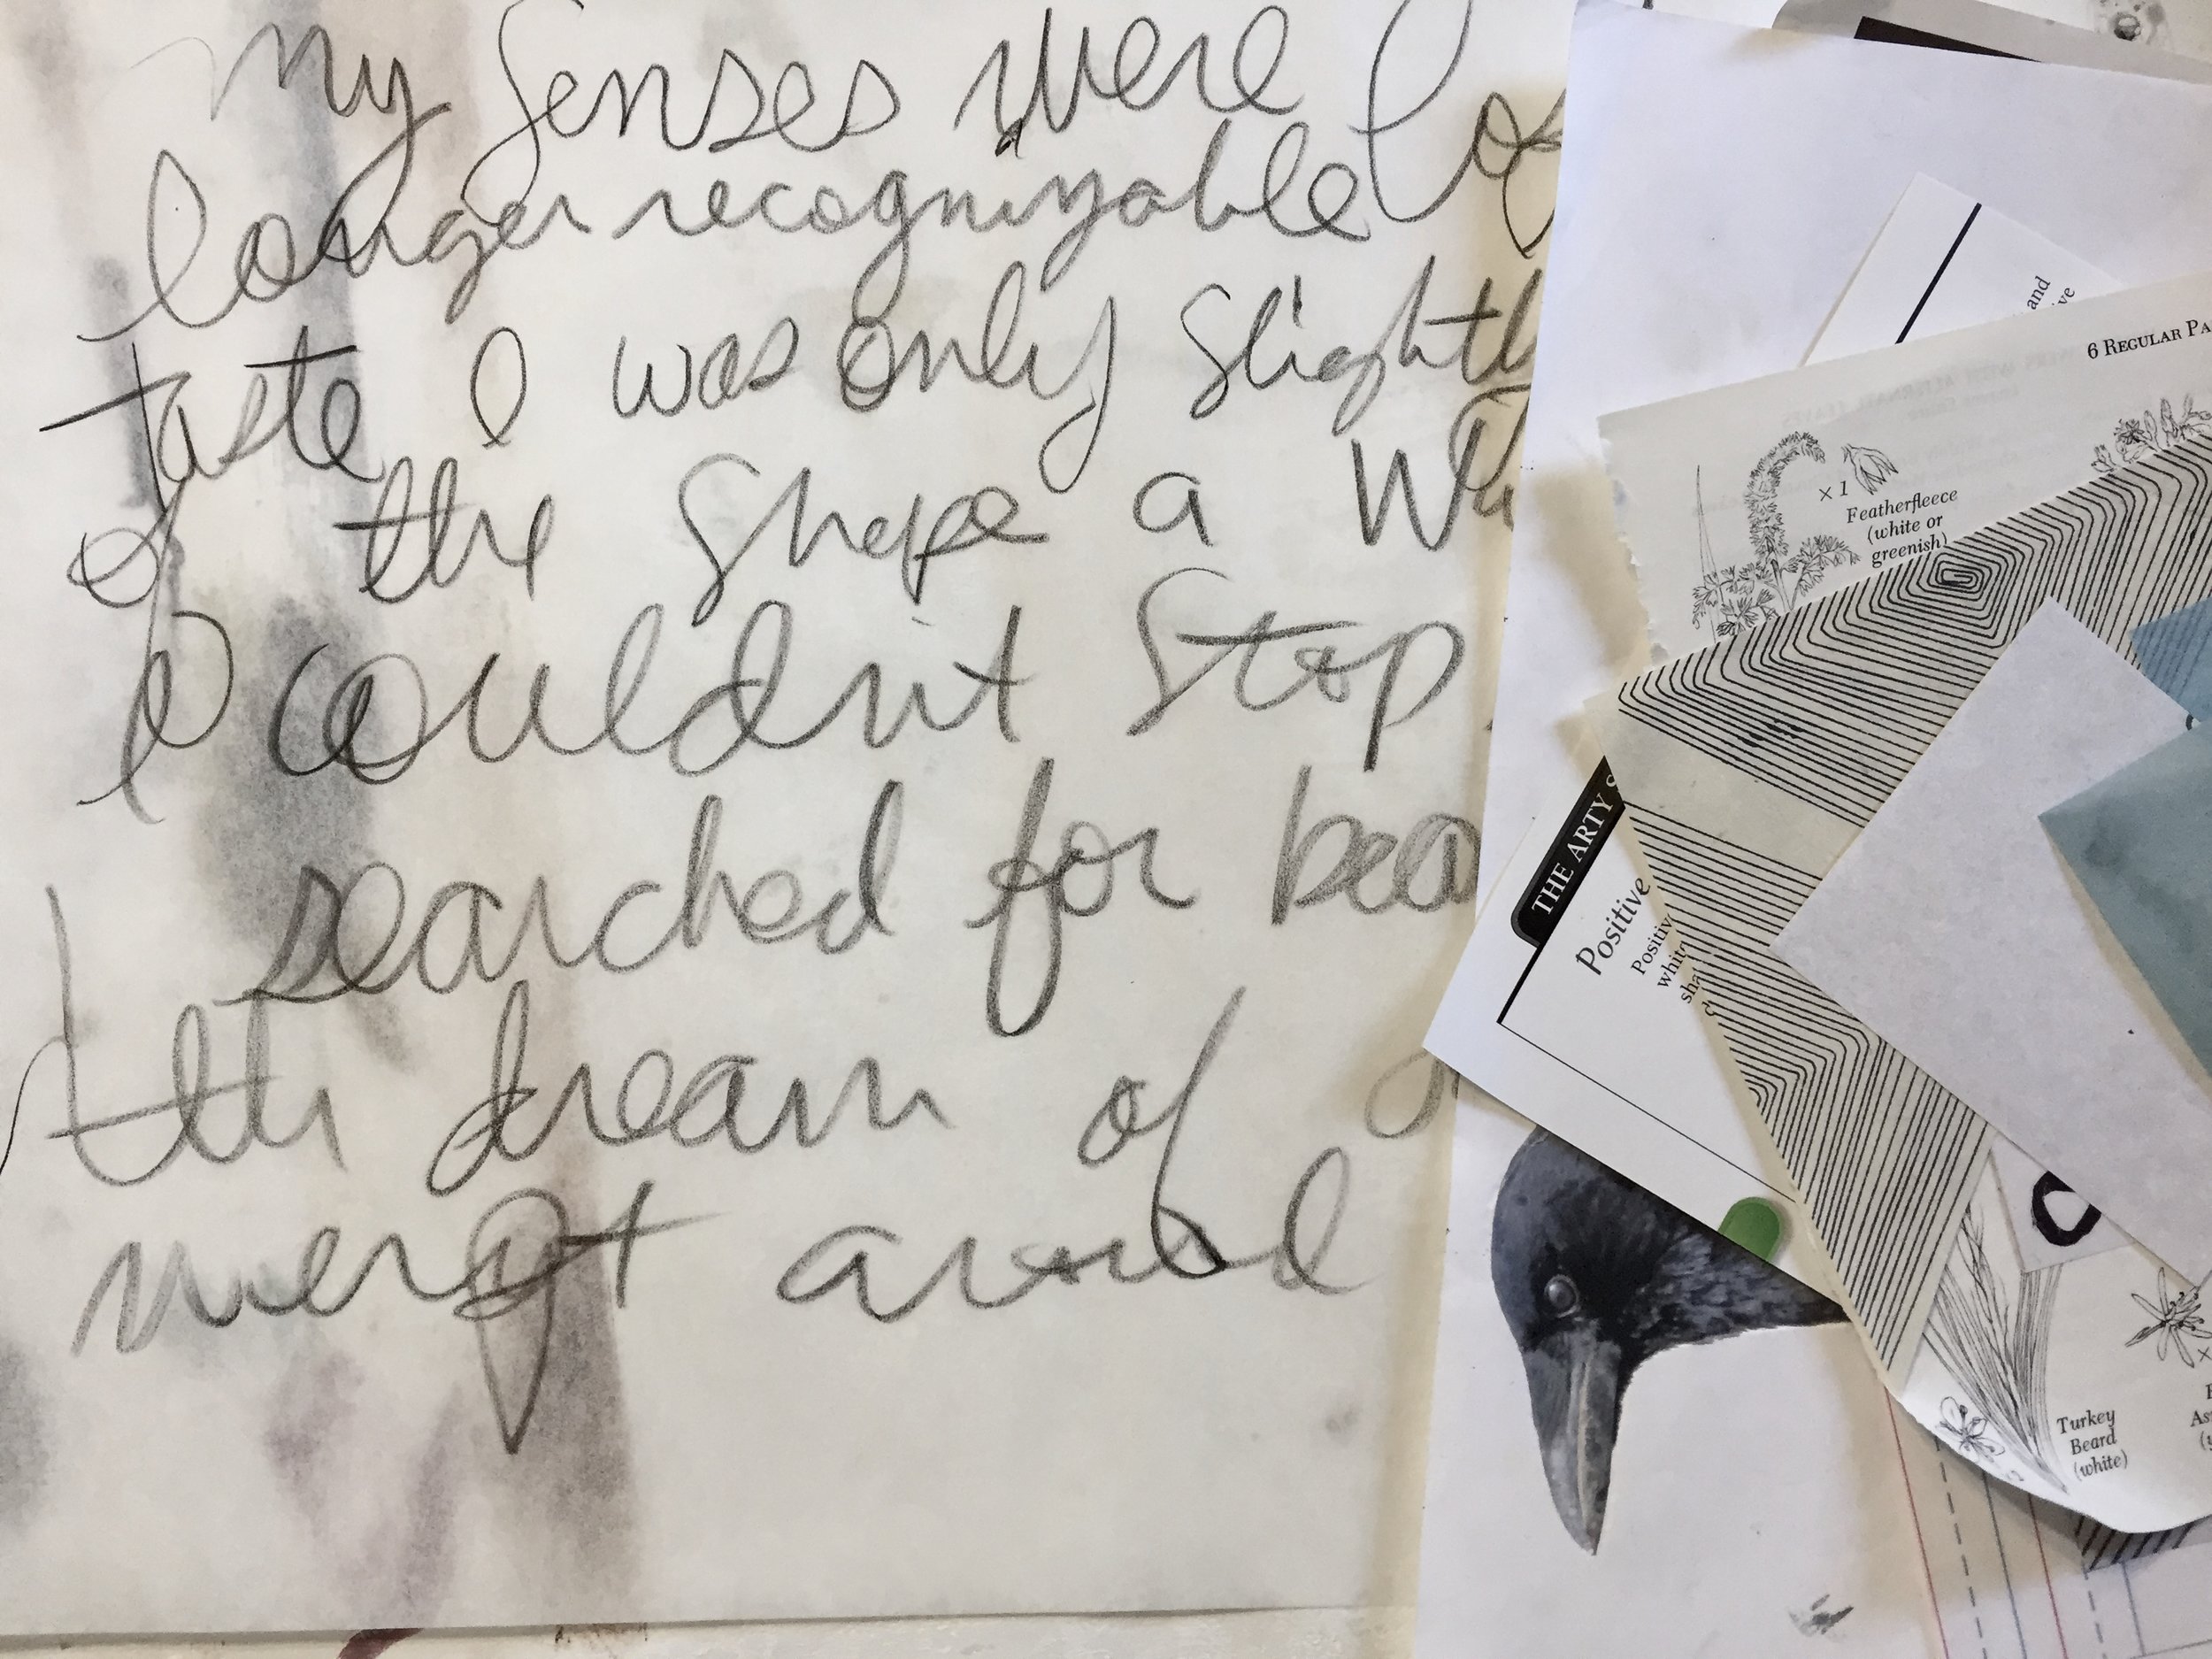 my senses were
longer recognizable
taste I was only
of the shape a
I couldn't stop
searched for
the dream of
and
ve
6 REGULAR PA
×1
Featherfleece
(white or
greenish)
THE ARTY S
Positive
Positiv
whit
sha
Turkey
Beard
(white)